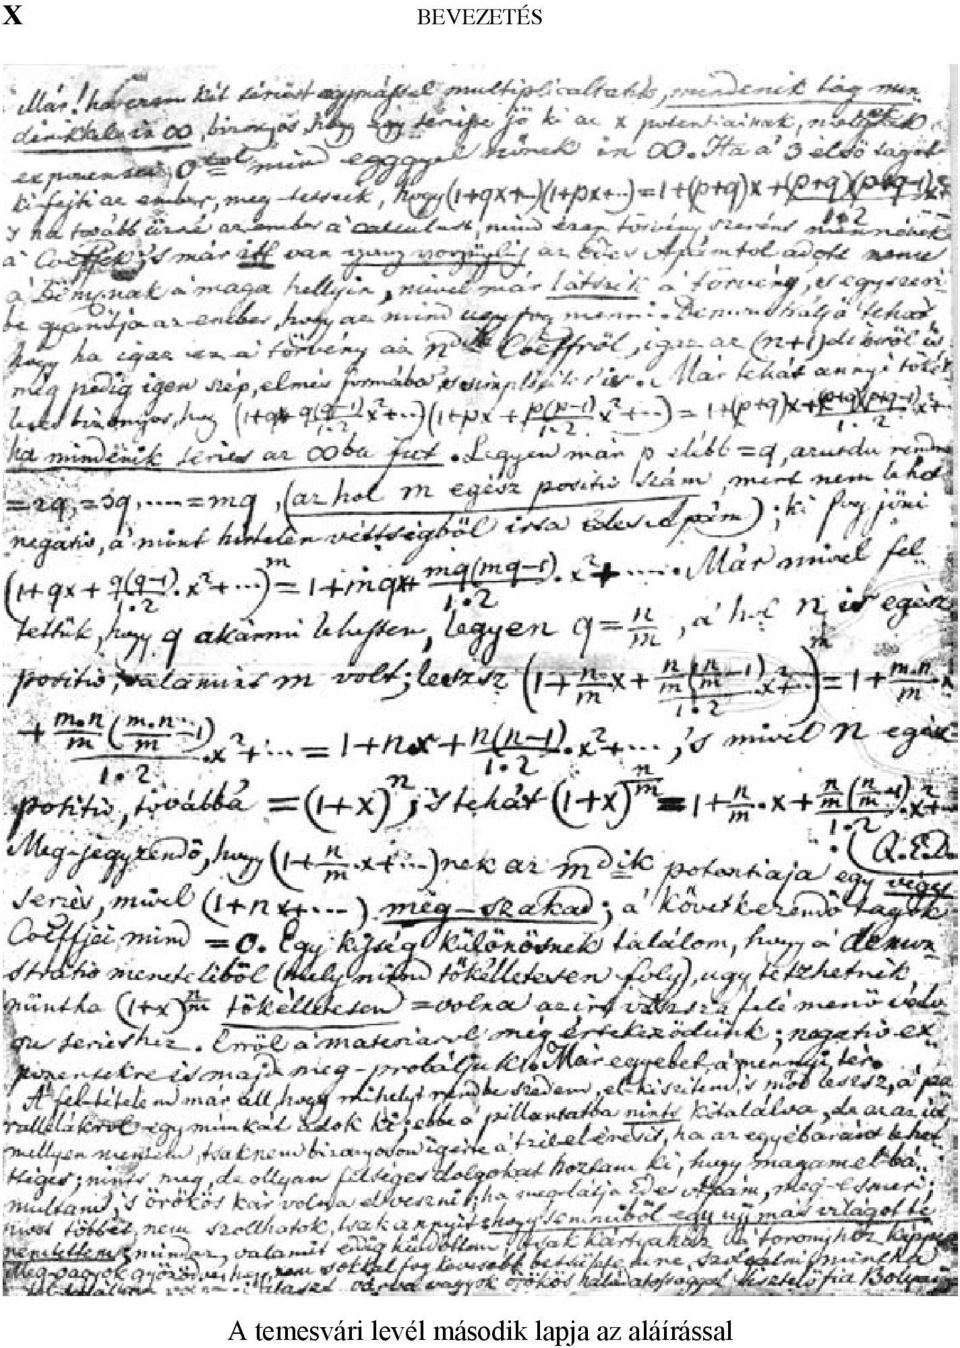 X BEVEZETÉS
Már! ha ezen két seriest egymással multiplicáltatik, mindenik tag min
denikkel in ∞, bizonyos, hogy egy series jö ki az x potentiainak, melynek
exponensei 0tol mind egggyel nőnek in ∞. Ha a' 3 első tagot
ki fejti az ember, meg-tetszik, hogy (1+qx+..)(1+px+..)=1+(p+q)x+(p+q)(p+q-1)/1·2 x²
's ha tovább űzné az ember a' calculust, mind ezen törvény szerént mennének
a' Coeffek, 's már itt van az Édes Apámtol adott neme
a' Bény-nak a' maga hellyin, mivel már látszik a' törvény, és egyszeri
be gyanítja az ember, hogy az mind ugy fog menni. Demunstrálja tehát
hogy ha igaz ez a' törvény az ndik Coeffről, igaz az (n+1)dikről is
még pedig igen szép, elmés formába, és simplicitér is. Már tehát annyi tökél
letes bizonyos, hogy (1+qx+ q(q-1)/1·2 x²+...)(1+px+ p(p-1)/1·2 x²+...) = 1+(p+q)x+(p+q)(p+q-1)/1·2 x²+..
ha mindenik series az ∞ba fut. Legyen már p elébb =q, azután rendre
=2q, =3q, .... =mq, (az hol m egész positiv szám, mert nem lehet
negativ, a' mint hirtelen véttségből irta Édes Apám); ki fog jöni
(1+qx+ q(q-1)/1·2 .x²+...)^m = 1+mqx+ mq(mq-1)/1·2 .x²+..... Már mivel fel
tettük, hogy q akármi lehessen, legyen q = n/m, a' hol n is egész
positiv, valamint m volt; leszsz (1+ n/m x+ n/m(n/m -1)/1·2 .x²+...)^m = 1+ m.n/m x
+ m.n/m (m.n/m -1)/1·2 .x²+... = 1+n.x+ n(n-1)/1·2 .x²+..., 's mivel n egész
positiv, továbbá =(1+x)^n; 's tehát (1+x)^n/m = 1+ n/m .x+ n/m(n/m -1)/1·2 .x²+
..: (Q.E.D.
Meg-jegyzendő, hogy (1+ n/m .x+...)nek az mdik potentiaja egy véges
series, mivel (1+nx+...) még-szakad; a' következendő tagok
Coeffjei mind =0. Egy kisség különösnek találom, hogy a' demun
stratio meneteliből (mely mind tökélletesen foly), ugy tetzhetnék
mintha (1+x)^n/m tökélletesen =volna az irt vissza felé menő
serieshez. Erröl a' materiarol még értekeződünk; negativ ex
ponensekre is majd meg-probáljuk. Már egyebet, a' mennyi tér.
A' fel-tételem már áll, hogy mihelyt rendbe szedem, el-készitem, 's mód leszsz, a' pa
rallelákrol egy munkát adok ki; ebbe a' pillantatba nints kitalálva, de az az út
mellyen mentem, tsaknem bizonyoson igérte a' tzél el-érését, ha az egyébaránt lehet
séges; nints meg, de ollyan felséges dolgokat hoztam ki, hogy magam el-bá
multam, 's örökös kár volna el veszni; ha meglátja Édes Apám, meg-esmeri;
most többet nem szollhatok, tsak annyit: hogy semmiből egy uj más világot te
remtettem; mindaz, valamit eddig küldöttem, tsak kártyaház a' toronyhoz képpest
Meg vagyok győződve, hogy nem sokkal fog kevesebb betsületemre szolgálni, mintha
vagyok örökös háladatossaggal tisztelő fia Bolyai
A temesvári levél második lapja az aláírással